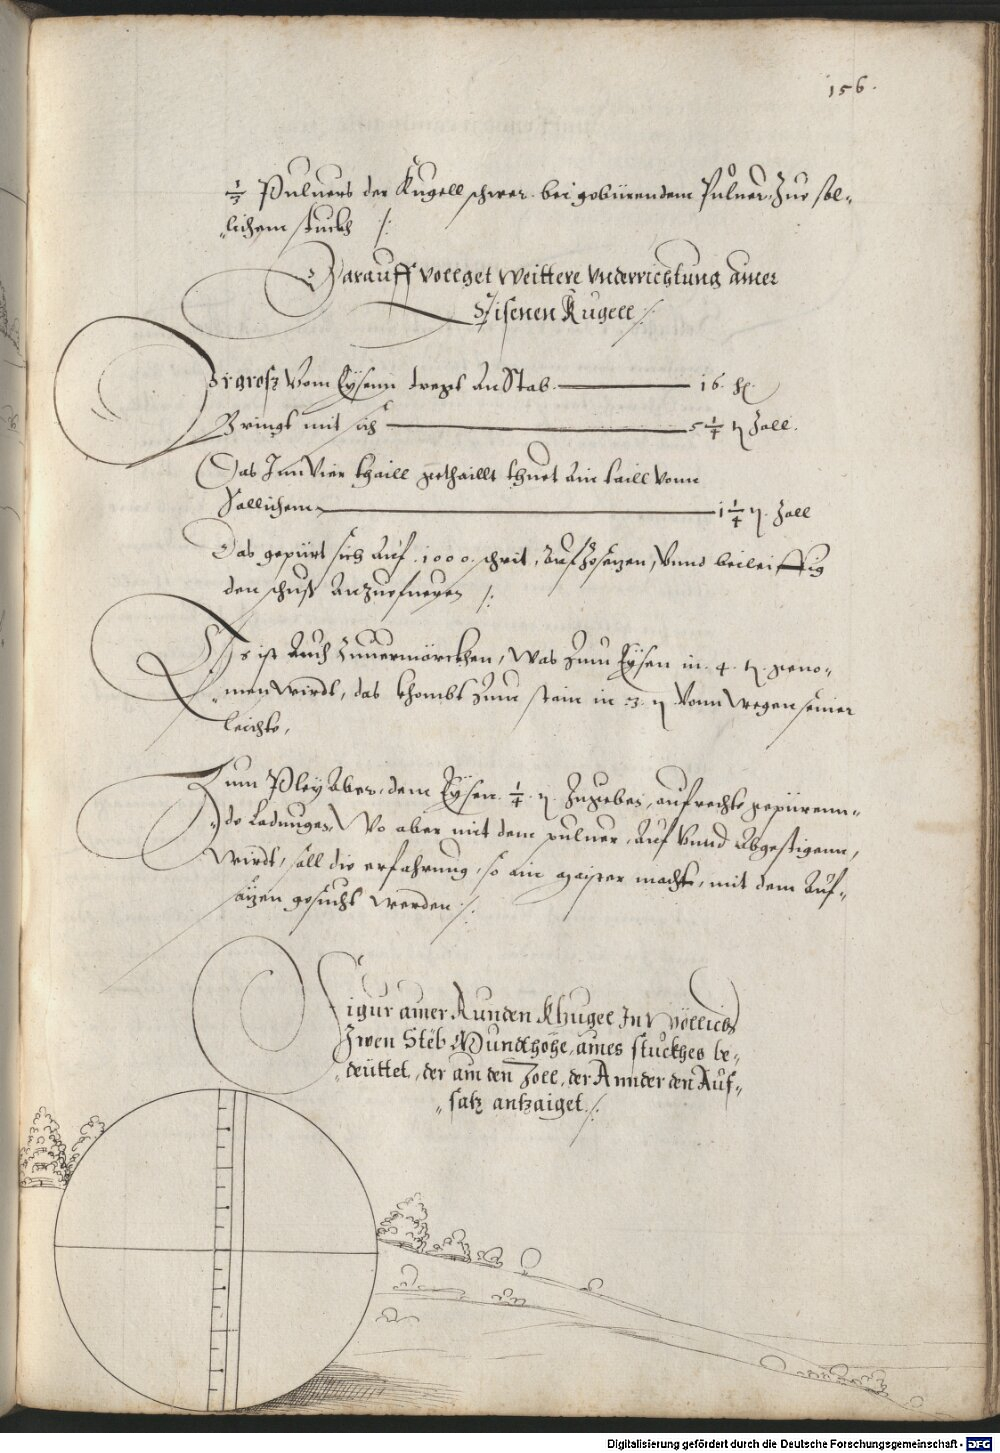 156.
1/3 Puluers der Kugell schwer. bei gebürendem Puluer. Zue sol-
lichem stuckh /:
Darauff vollget weittere vnderrichtung ainer
Eisenen Kugell /:
Die groß Vom Eysenn tregt An Stab 16. ℔.
Bringt mit sich 5 1/4 Zoll.
Das Inn Vier thaill gethaillt thuet Ain taill Vonn
Sollichem 1 1/4 Zoll
Das gepürt sich Auf .1000. schrit, Aufzosezen, Vnnd beileiffig
den schuß Anzuefueren /:
Es ist Auch Zuuermörckhen, Was Zum Eysen in .4. geno-
men Wirdt, das khombt Zum stain in .3. Vonn Wegen seiner
leichte,
Zum Pley Aber, dem Eysen 1/4 Zugeben, auf rechte gepürenn-
de Ladunngen, Wo aber mit dem puluer, Auf Vnnd Abgestigenn,
Wirdt, soll die erfahrung, so ain maister macht, mit dem Auf-
säzen gesucht werden /:
Figur ainer Runden Khugel In Wöllich
Zwen Steb Mundthöhe, aines stuckhes be-
deüttet, der ain den Zoll, der Annder den Auf-
satz antzaiget /:
Digitalisierung gefördert durch die Deutsche Forschungsgemeinschaft - DFG